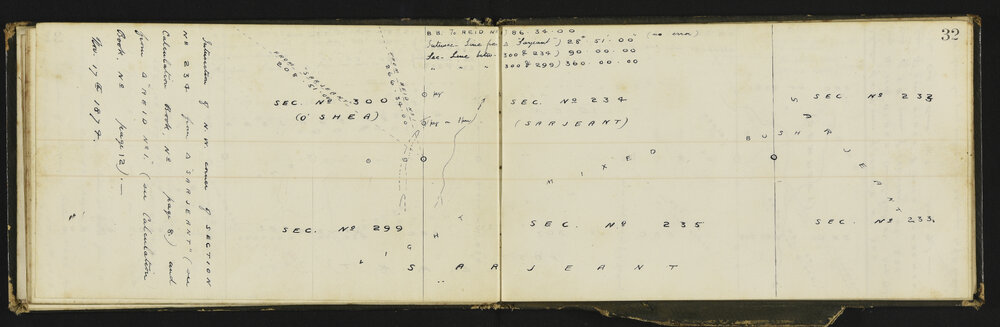 32
B.B. To REID Nº 1) 86. 34. 00 (no error)
Sarjeant) 28. 51. 00
Sec. Line betn. 300 & 234) 90. 00. 00
" " 300 & 299) 360. 00. 00
FROM "SARJEANT"
208. 51. 00
FROM REID Nº 1
266. 34. 00
SEC. Nº 300
(O'SHEA)
peg
SEC. Nº 234
(SARJEANT)
SEC. Nº 232
BUSH &
MIXED
SEC. Nº 299
SEC. Nº 235
SEC. Nº 233
SARJEANT
Intersection of N.W. corner of SECTION
Nº 234 from △ "SARJEANT" (see
Calculation Book Nº page 8.) and
from △ "REID Nº 1" (see Calculation
Book. Nº page 12). —
Nov. 17th 1874.